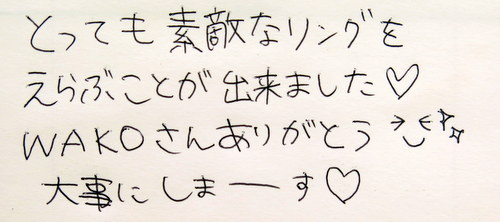 とっても素敵なリングを
えらぶことが出来ました♡
WAKOさんありがとう
大事にしまーす♡